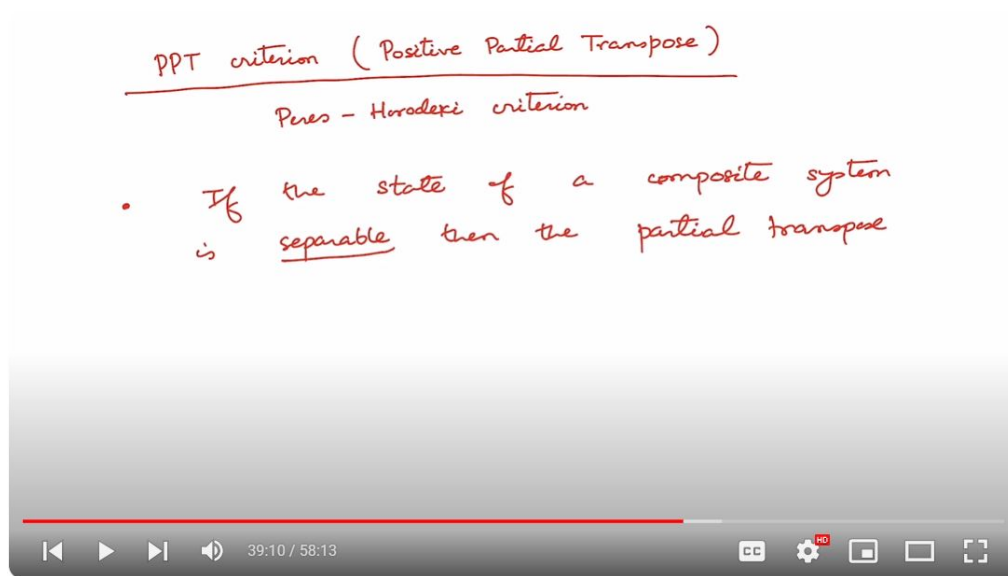 PPT criterion (Positive Partial Transpose)
Peres - Horodeki criterion
• If the state of a composite system
is separable then the partial transpose
39:10 / 58:13
CC
HD